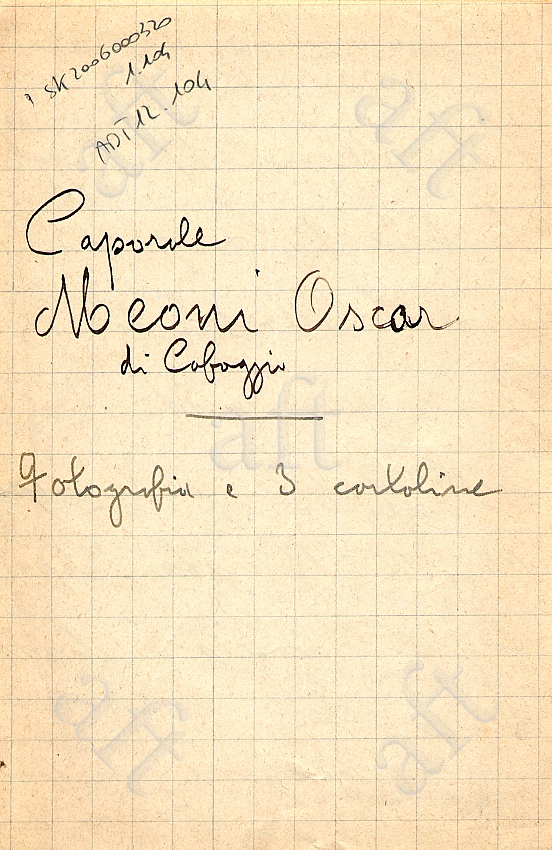 SK2006000320
1.104
ADT12.104
Caporale
Meoni Oscar
di Cafaggio
Fotografia e 3 cartoline
aft
aft
aft
aft
aft